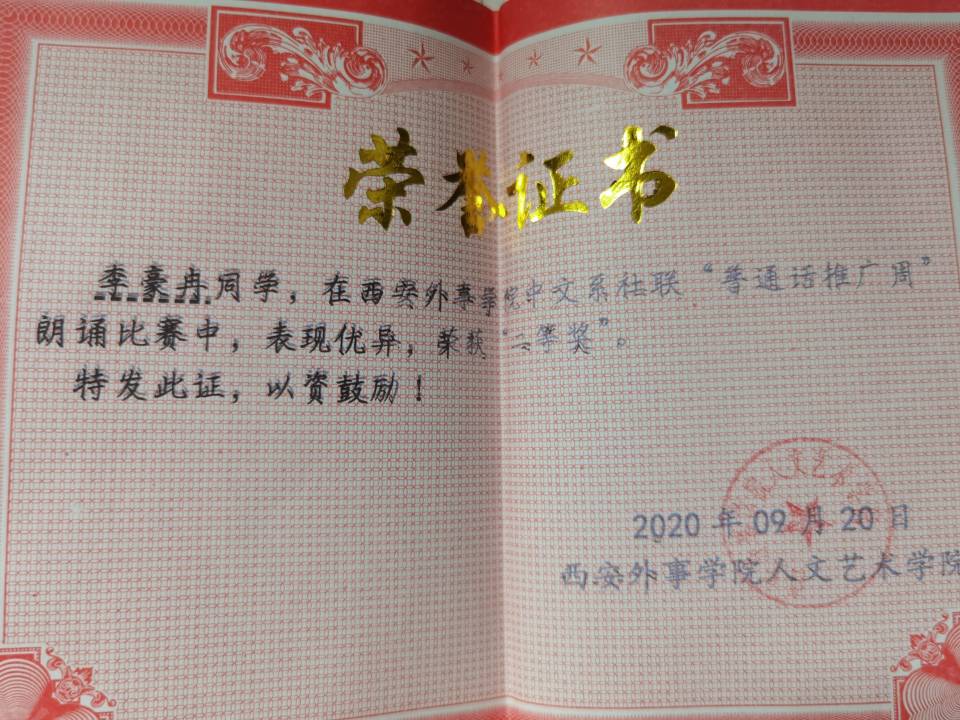 荣誉证书
李豪冉同学，在西安外事学院中文系社联“普通话推广周”
朗诵比赛中，表现优异，荣获“二等奖”。
特发此证，以资鼓励！
2020 年 09 月 20 日
西安外事学院人文艺术学院